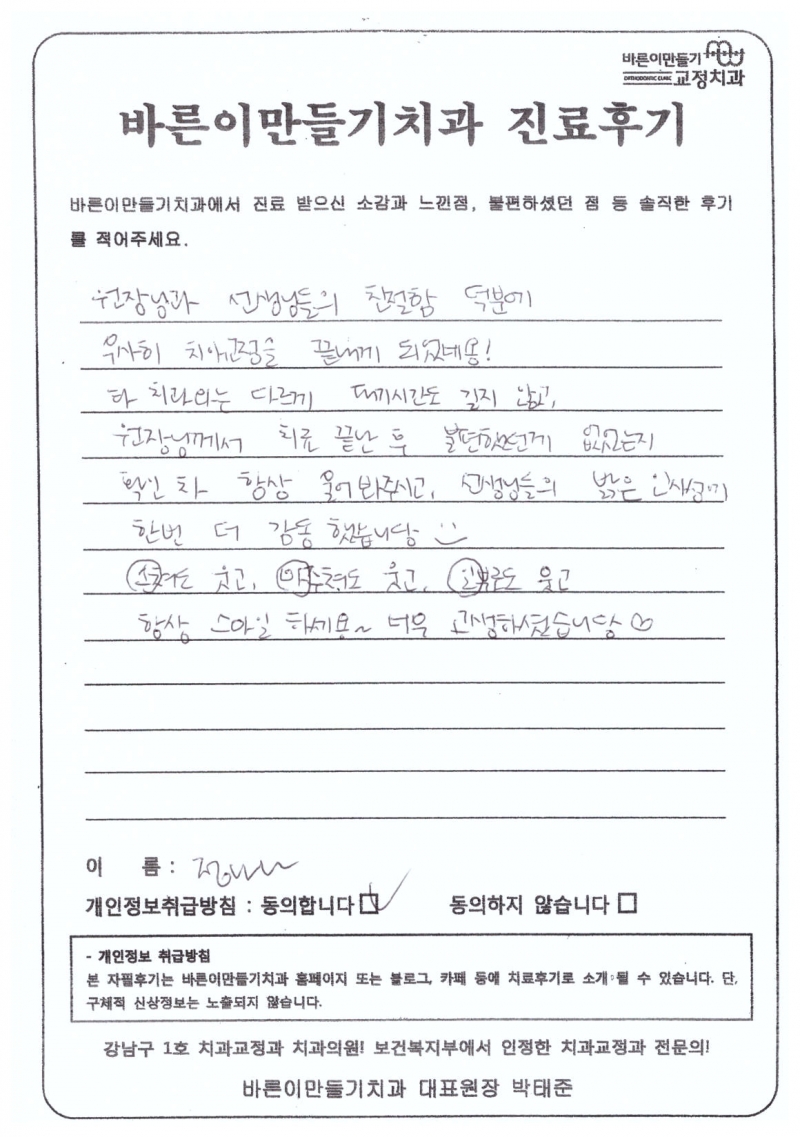 바른이만들기
ORTHODONTIC CLINIC 교정치과
바른이만들기치과 진료후기
바른이만들기치과에서 진료 받으신 소감과 느낀점, 불편하셨던 점 등 솔직한 후기
를 적어주세요.
원장님과 선생님들의 친절함 덕분에
무사히 치아교정을 끝내게 되었네용!
타 치과와는 다르게 대기시간도 길지 않고,
원장님께서 치료 끝난 후 불편했던게 없었는지
확인 차 항상 물어봐주시고, 선생님들의 밝은 인사성에
한번 더 감동 했습니당
스쳐도 웃고, 마주쳐도 웃고, 일부러도 웃고
항상 스마일 하세용~ 너무 고생하셨습니당
이 름 :
개인정보취급방침 : 동의합니다 동의하지 않습니다
- 개인정보 취급방침
본 자필후기는 바른이만들기치과 홈페이지 또는 블로그, 카페 등에 치료후기로 소개 될 수 있습니다. 단,
구체적 신상정보는 노출되지 않습니다.
강남구 1호 치과교정과 치과의원! 보건복지부에서 인정한 치과교정과 전문의!
바른이만들기치과 대표원장 박태준